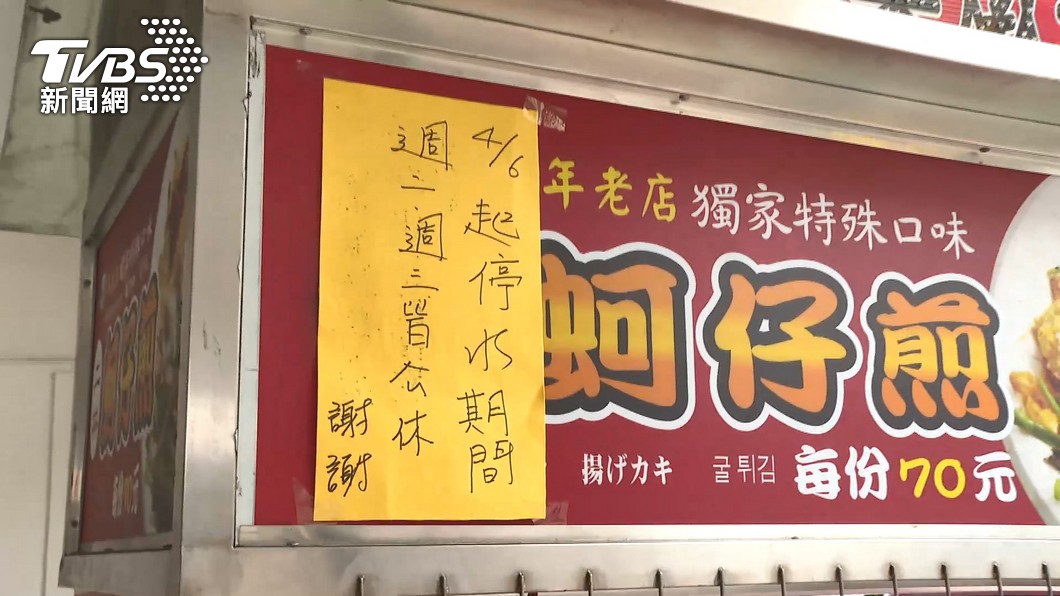 TVBS
新聞網
4/6起停水期間
週二、週三皆公休
謝謝
年老店 獨家特殊口味
蚵仔煎
揚げカキ 굴튀김 每份70元
蚵仔煎